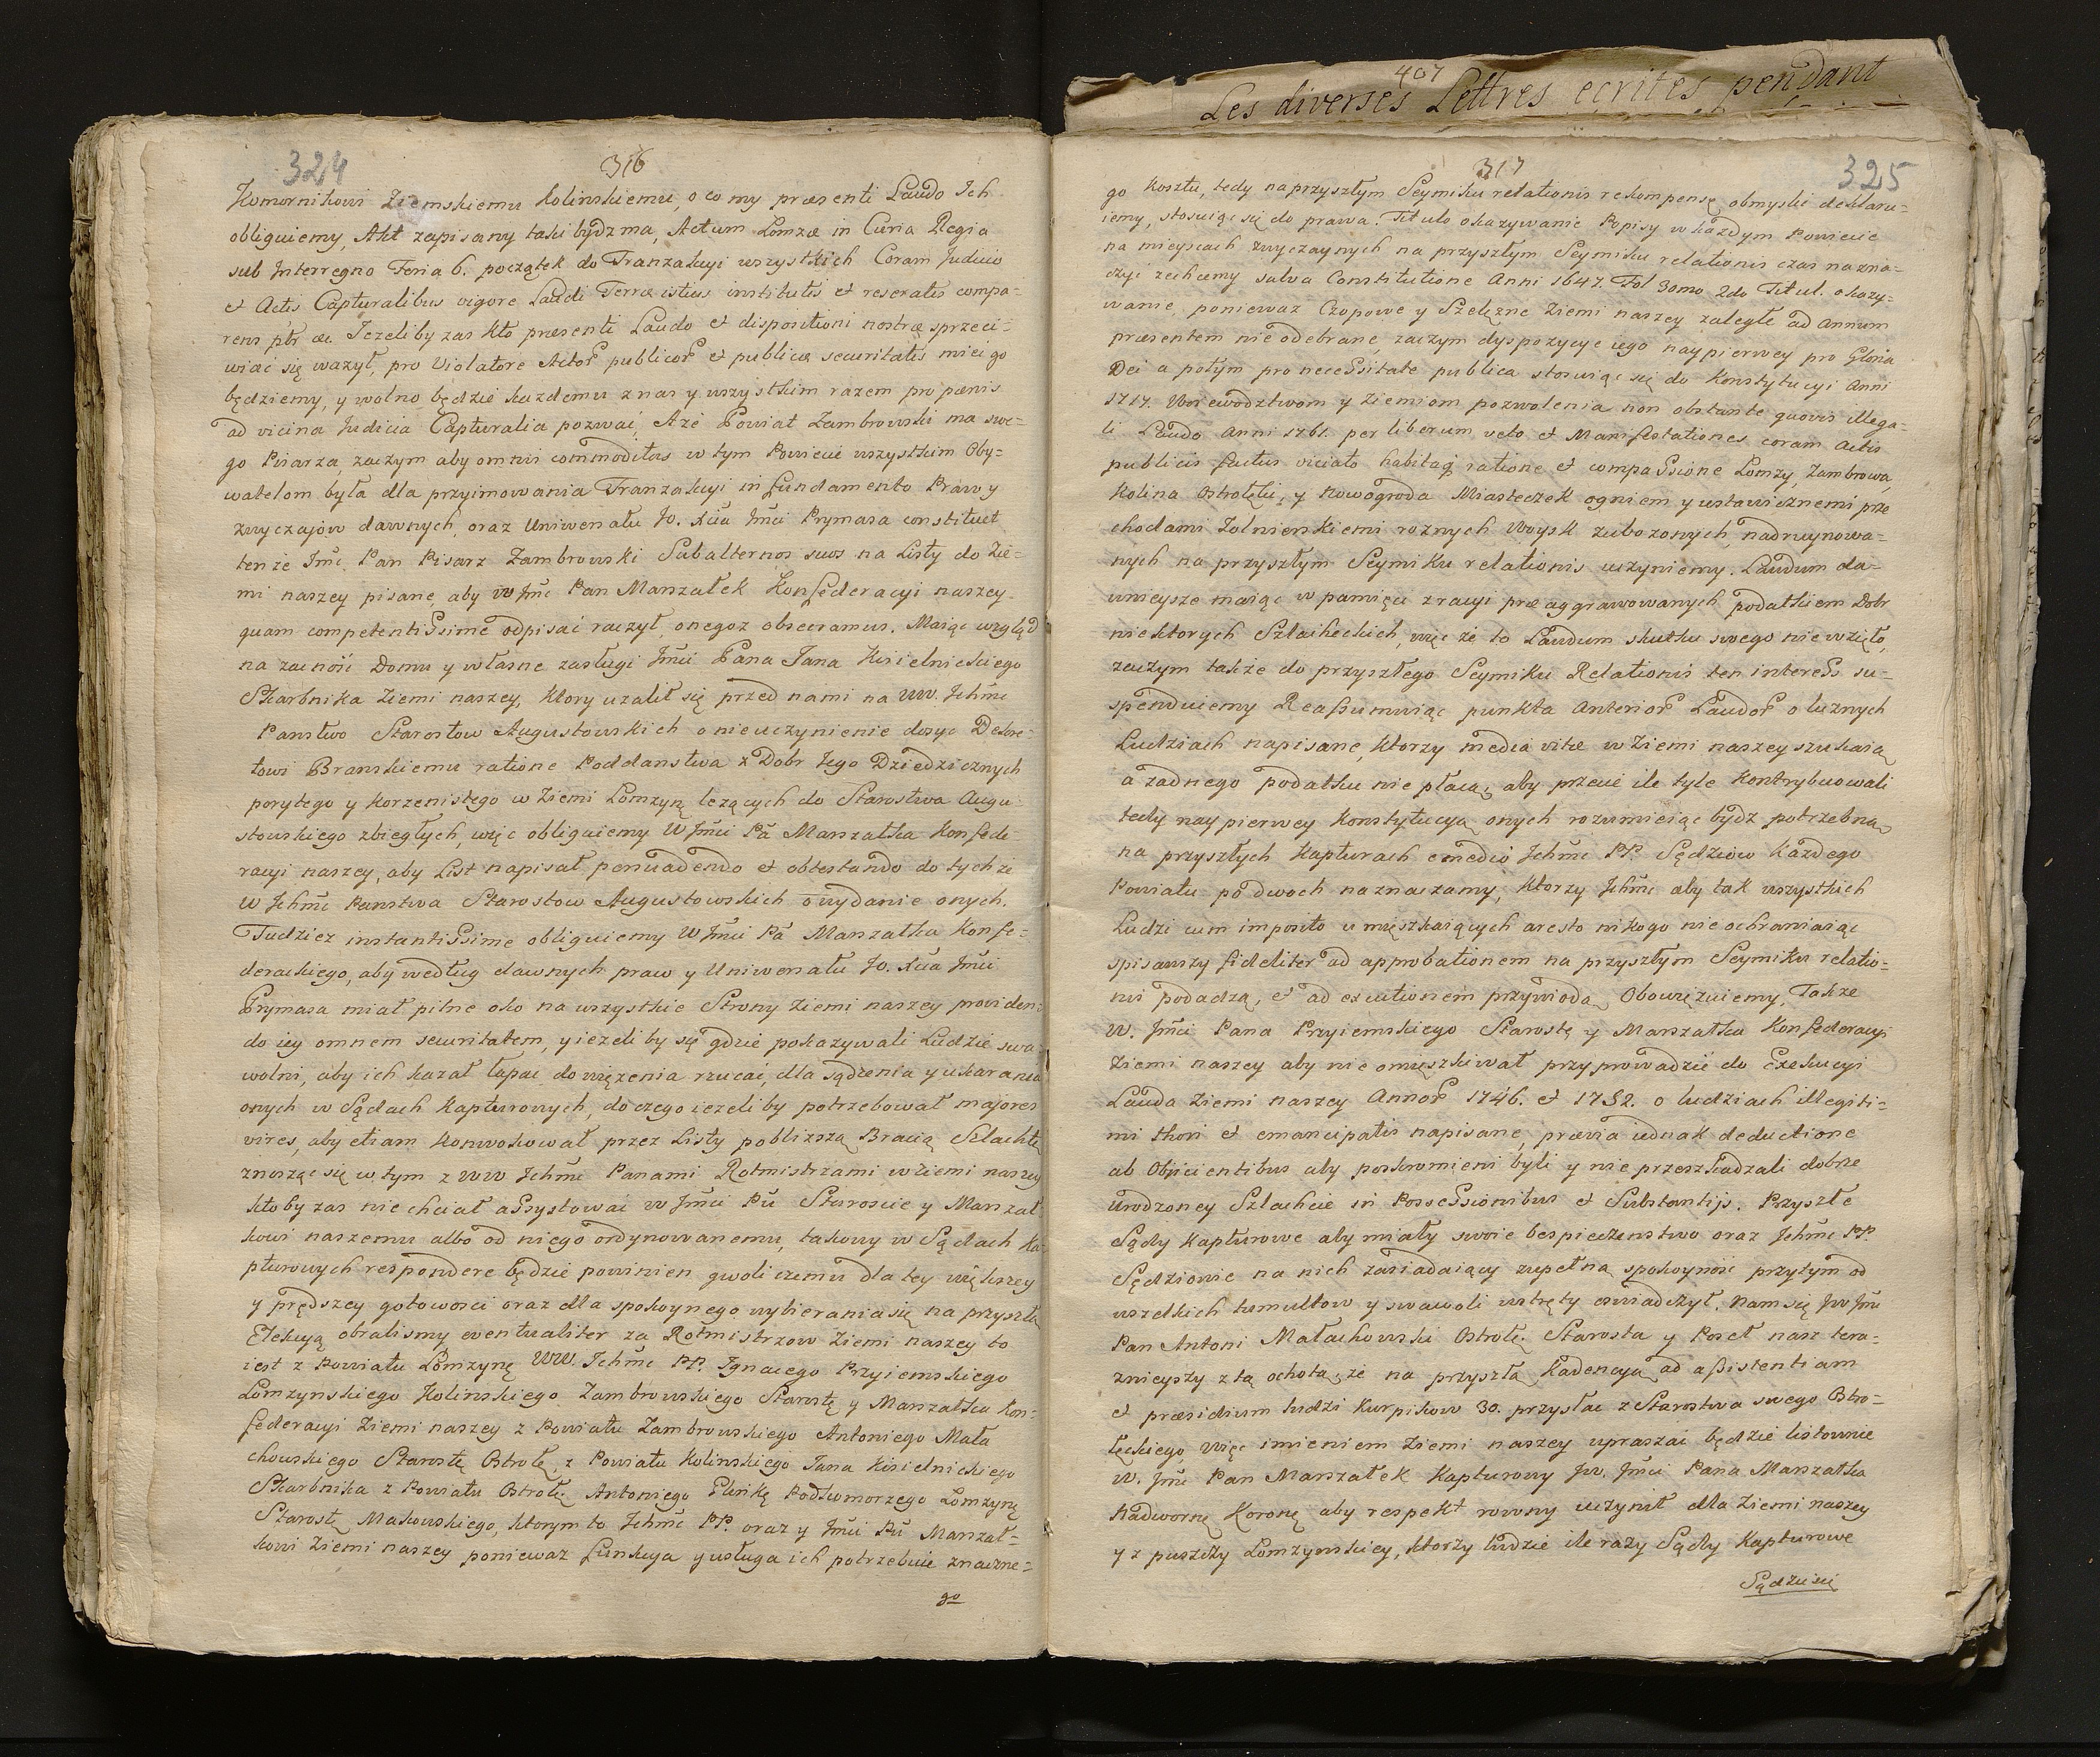 324
316
Komornikowi Ziemskiemu Kolinskiemu, o co my præsenti Laudo Ich
obliguiemy, Akt zapisany taki bydz ma, Actum Lomzæ in Curia Regia
sub Interregno Feria 6. początek do Tranzakcyi wszystkich Coram Judicio
et Actis Capturalibus vigore Laudi Terræ istius institutis et reseratis compa-
rens ptr &c. Jezeliby zas kto præsenti Laudo et dispositioni nostræ sprzeci-
wiać się wazył, pro Violatore Actor publicor et publicæ securitatis mieć go
będziemy, y wolno będzie kazdemu z nas y wszystkim razem pro pœnis
ad vicina Judicia Capturalia pozwać, A że Powiat Zambrowski ma swe-
go Pisarza, zaczym aby omnis commoditas w tym Powiecie wszystkim Oby=
watelom była dla przyimowania Tranzakcyi in fundamento Praw y
zwyczajow dawnych, oraz Uniwersału Jo. Xcia Jmci Prymasa constituet
tenże Jmć. Pan Pisarz Zambrowski Subalternos suos na Listy do Zie-
mi naszey pisane, aby W Jmć Pan Marszałek Konfederacyi naszey
quam competentissime odpisać raczył, onegoz obsecramus. Maiąc wzgląd
na zacność Domu y własne zasługi Jmći Pana Jana Kisielnickiego
Skarbnika Ziemi naszey, ktory uzalił się przed nami na WW. Ichmć
Panstwo Starostow Augustowskich o nieuczynienie dosyc Dekre-
towi Branskiemu ratione Poddanstwa z Dobr Jego Dziedzicznych
porytego y Korzenistego w Ziemi Lomzyń lezących do Starostwa Augu-
stowskiego zbiegłych, więc obliguiemy W Jmći Pa Marszałka Konfede-
racyi naszey, aby List napisał persuadendo et obtestando do tychże
W Ichmć Panstwa Starostow Augustowskich o wydanie onych.
Tudziez instantissime obliguiemy W Jmći Pa Marszałka Konfe-
derackiego, aby według dawnych praw y Uniwersału Jo. Xcia Jmći
Prymasa miał pilne oko na wszystkie Strony Ziemi naszey providen-
do iey omnem securitatem, y iezeli by się gdzie pokazywali Ludzie swa-
wolni, aby ich kazał łapać do więzenia rzucać, dla sądzenia y ukarania
onych w Sądach Kapturowych, do czego iezeliby potrzebował majores
vires, aby etiam konwokował przez Listy poblizszą Bracią Szlachtę
znosząc się w tym z WW Ichmć Panami Rotmistrzami w Ziemi naszey
ktoby zas nie chciał assystować W Jmći Pu Staroscie y Marszał
kowi naszemu albo od niego ordynowanemu, takowy w Sądach Ka-
pturowych respondere będzie powinien gwoli czemu dla tey większey
y prędszey gotowości oraz dla spokoynego wybierania się na przyszłą
Elekcyą obralismy eventualiter za Rotmistrzow Ziemi naszey to
iest z Powiatu Lomzynę WW. Ichmć PP. Ignacego Przyiemskiego
Lomzynskiego Kolinskiego Zambrowskiego Starostę y Marszałka Kon-
federacyi Ziemi naszey z Powiatu Zambrowskiego Antoniego Mała
chowskiego Starostę Ostrołę, z Powiatu Kolinskiego Jana Kisielnickiego
Skarbnika z Powiatu Ostrołę Antoniego Glinkę Podkomorzego Lomzynę
Starostę Makowskiego, ktorym to Ichmć PP. oraz y Jmći Pu Marszał-
kowi Ziemi naszey poniewaz funkcya y usługa ich potrzebuie znaczne-
go
407
Les diverses Lettres ecrites pendant
317
325
go Kosztu, tedy na przyszłym Seymiku relationis rekompensę obmyslić deklaru-
iemy, stosuiąc się do prawa. Titulo okazywanie Popisy w każdym Powiecie
na mieyscach zwyczaynych na przyszłym Seymiku relationis czas nazna-
czyć zechcemy salva Constitutione Anni 1647. Fol 3omo 2do Titul. okazy-
wanie, poniewaz Czopowe y Szelęzne Ziemi naszey zaległe ad Annum
præsentem nie odebrane, zaczym dyspozycye iego naypierwey pro Gloria
Dei a potym pro necessitate publica stosuiąc się do Konstytucyi Anni
1717. Woiewodztwom y Ziemiom pozwolenia non obstante quovis illega-
li Laudo Anni 1761. per liberum veto et Manifestationes coram Actis
publicis factus viciato habitaq ratione et compassione Lomzy, Zambrowa,
Kolina Ostrołęki, y Nowogroda Miasteczek ogniem y ustawicznemi prze
chodami Zolnierskiemi roznych Woysk zubozonych, nadruynowa-
nych na przyszłym Seymiku relationis uczyniemy. Laudum da-
wnieysze maiąc w pamięci z racyi præaggrawowanych podatkiem Dobr
niektorych Szlacheckich, więc że to Laudum skutku swego nie wzięło,
zaczym także do przyszłego Seymiku Relationis ten interess su-
spenduiemy Reassumuiąc punkta Anterior Laudor o luznych
Ludziach napisane, ktorzy media vitæ w Ziemi naszey szukaią
a zadnego podatku nie płacą, aby przecie ile tyle kontrybuowali
tedy naypierwey Konstytucyą onych rozumieiąc bydz potrzebną
na przyszłych Kapturach e medio Ichmć PP. Sędziow każdego
Powiatu po dwoch naznaczamy, ktorzy Ichmć aby tak wszystkich
Ludzi cum imposito umieszkaiących aresto nikogo nie ochraniaiąc
spisawszy fideliter ad approbationem na przyszłym Seymiku relatio-
nis podadzą, et ad executionem przywiodą Obowięzuiemy, Także
W. Jmći Pana Przyiemskiego Starostę y Marszałka Konfederacyi
Ziemi naszey aby nie omieszkiwał przyprowadzić do Exekucyi
Lauda Ziemi naszey Annor 1746. et 1752. o ludziach illegiti-
mi thori et emancipatis napisane, prævia iednak deductione
ab Objicientibus aby poskromieni byli y nie przeszkadzali dobrze
urodzoney Szlachcie in Possessionibus et Substantijs. Przyszłe
Sądy Kapturowe aby miały swoie bespieczenstwo oraz Ichmć PP.
Sędziowie na nich zasiadaiący zupełną spokoyność przytym od
wszelkich tumultow y swawoli wstręty oswiadczył. Nam się JW Jmć
Pan Antoni Małachowski Ostrołę. Starosta y Poseł nasz tera-
znieyszy z tą ochotą, że na przyszłą Kadencyą ad assistentiam
et præsidium ludzi Kurpikow 30. przysłać z Starostwa swego Ostro-
łęckiego, Więc imieniem Ziemi naszey upraszać będzie listownie
W. Jmć Pan Marszałek Kapturowy JW. Jmći Pana Marszałka
Nadwornę Koronę aby respekt rowny uczynił dla Ziemi naszey
y z puszczy Lomzynskiey, ktorzy ludzie ile razy Sądy Kapturowe
Sądzić się